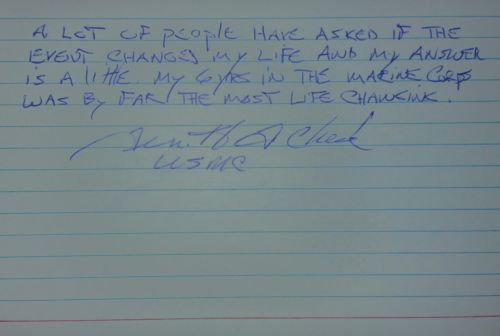 A LOT OF people HAVE ASKED IF THE
EVENT CHANGED MY LIFE AND MY ANSWER
IS A little. MY 6 YRS IN THE MARINE CORPS
WAS BY FAR THE MOST LIFE CHANGINK.
USMC